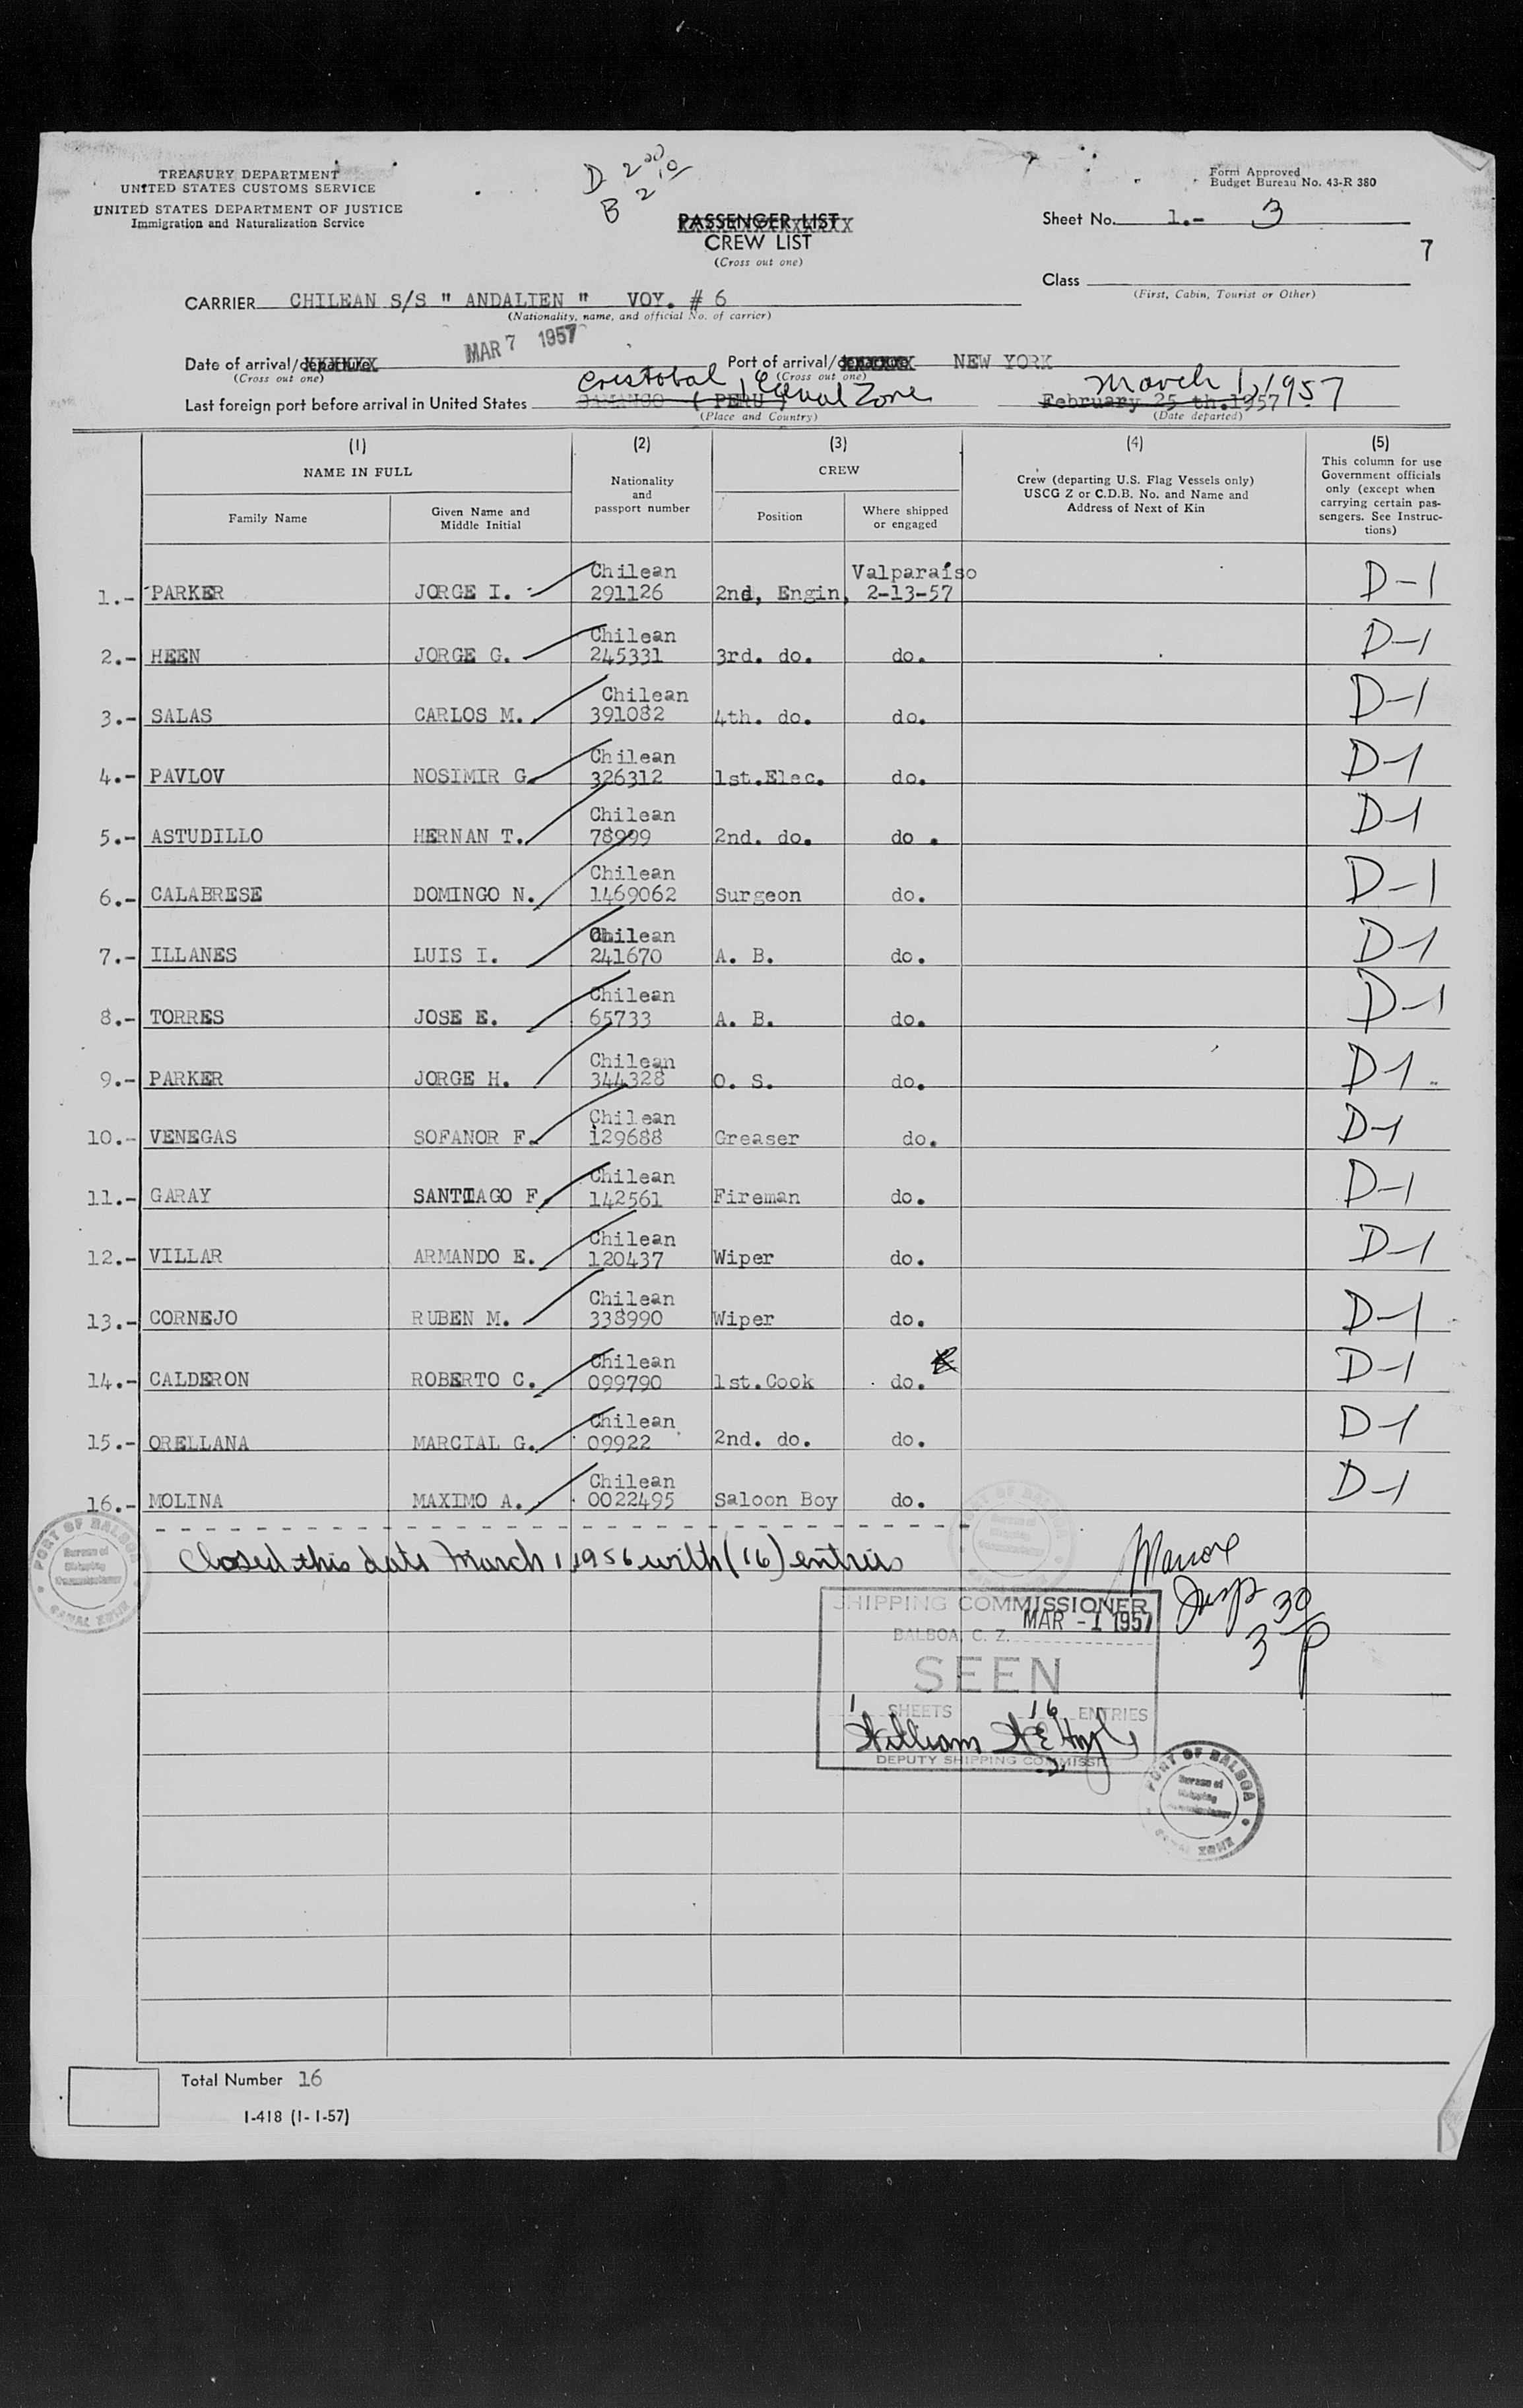 TREASURY DEPARTMENT
UNITED STATES CUSTOMS SERVICE
UNITED STATES DEPARTMENT OF JUSTICE
Immigration and Naturalization Service
D 2 00
B 2 10
PASSENGER LIST
CREW LIST
(Cross out one)
Form Approved
Budget Bureau No. 43-R 380
Sheet No. 1.- 3
7
Class
(First, Cabin, Tourist or Other)
CARRIER CHILEAN S/S " ANDALIEN " VOY. # 6
(Nationality, name, and official No. of carrier)
MAR 7 1957
Date of arrival/departure Port of arrival/departure NEW YORK
(Cross out one) (Cross out one)
Cristobal, Canal Zone March 1, 1957
Last foreign port before arrival in United States ( PERU ) February 25 th.1957
(Place and Country) (Date departed)
(1) (2) (3) (4) (5)
NAME IN FULL Nationality and passport number CREW Crew (departing U.S. Flag Vessels only) USCG Z or C.D.B. No. and Name and Address of Next of Kin This column for use Government officials only (except when carrying certain passengers. See Instructions)
Family Name Given Name and Middle Initial Position Where shipped or engaged
Chilean Valparaíso
1.- PARKER JORGE I. 291126 2nd, Engin, 2-13-57 D-1
Chilean
2.- HEEN JORGE G. 245331 3rd. do. do. D-1
Chilean
3.- SALAS CARLOS M. 391082 4th. do. do. D-1
Chilean
4.- PAVLOV NOSIMIR G. 326312 1st.Elec. do. D-1
Chilean
5.- ASTUDILLO HERNAN T. 78999 2nd. do. do . D-1
Chilean
6.- CALABRESE DOMINGO N. 1469062 Surgeon do. D-1
Chilean
7.- ILLANES LUIS I. 241670 A. B. do. D-1
Chilean
8.- TORRES JOSE E. 65733 A. B. do. D-1
Chilean
9.- PARKER JORGE H. 344328 O. S. do. D-1
Chilean
10.- VENEGAS SOFANOR F. 129688 Greaser do. D-1
Chilean
11.- GARAY SANTIAGO F. 142561 Fireman do. D-1
Chilean
12.- VILLAR ARMANDO E. 120437 Wiper do. D-1
Chilean
13.- CORNEJO RUBEN M. 338990 Wiper do. D-1
Chilean
14.- CALDERON ROBERTO C. 099790 1st.Cook do. D-1
Chilean
15.- ORELLANA MARCIAL G. 09922 2nd. do. do. D-1
Chilean
16.- MOLINA MAXIMO A. 0022495 Saloon Boy do. D-1
PORT OF BALBOA
Bureau of
Shipping
Commissioner
CANAL ZONE
Closed this date March 1, 1956 with (16) entries
Insp
3 30 P
SHIPPING COMMISSIONER
MAR -1 1957
BALBOA, C. Z.
SEEN
1 SHEETS 16 ENTRIES
William
DEPUTY SHIPPING COMMISSI
PORT OF BALBOA
Bureau of
Shipping
Commissioner
CANAL ZONE
Total Number 16
I-418 (1-1-57)